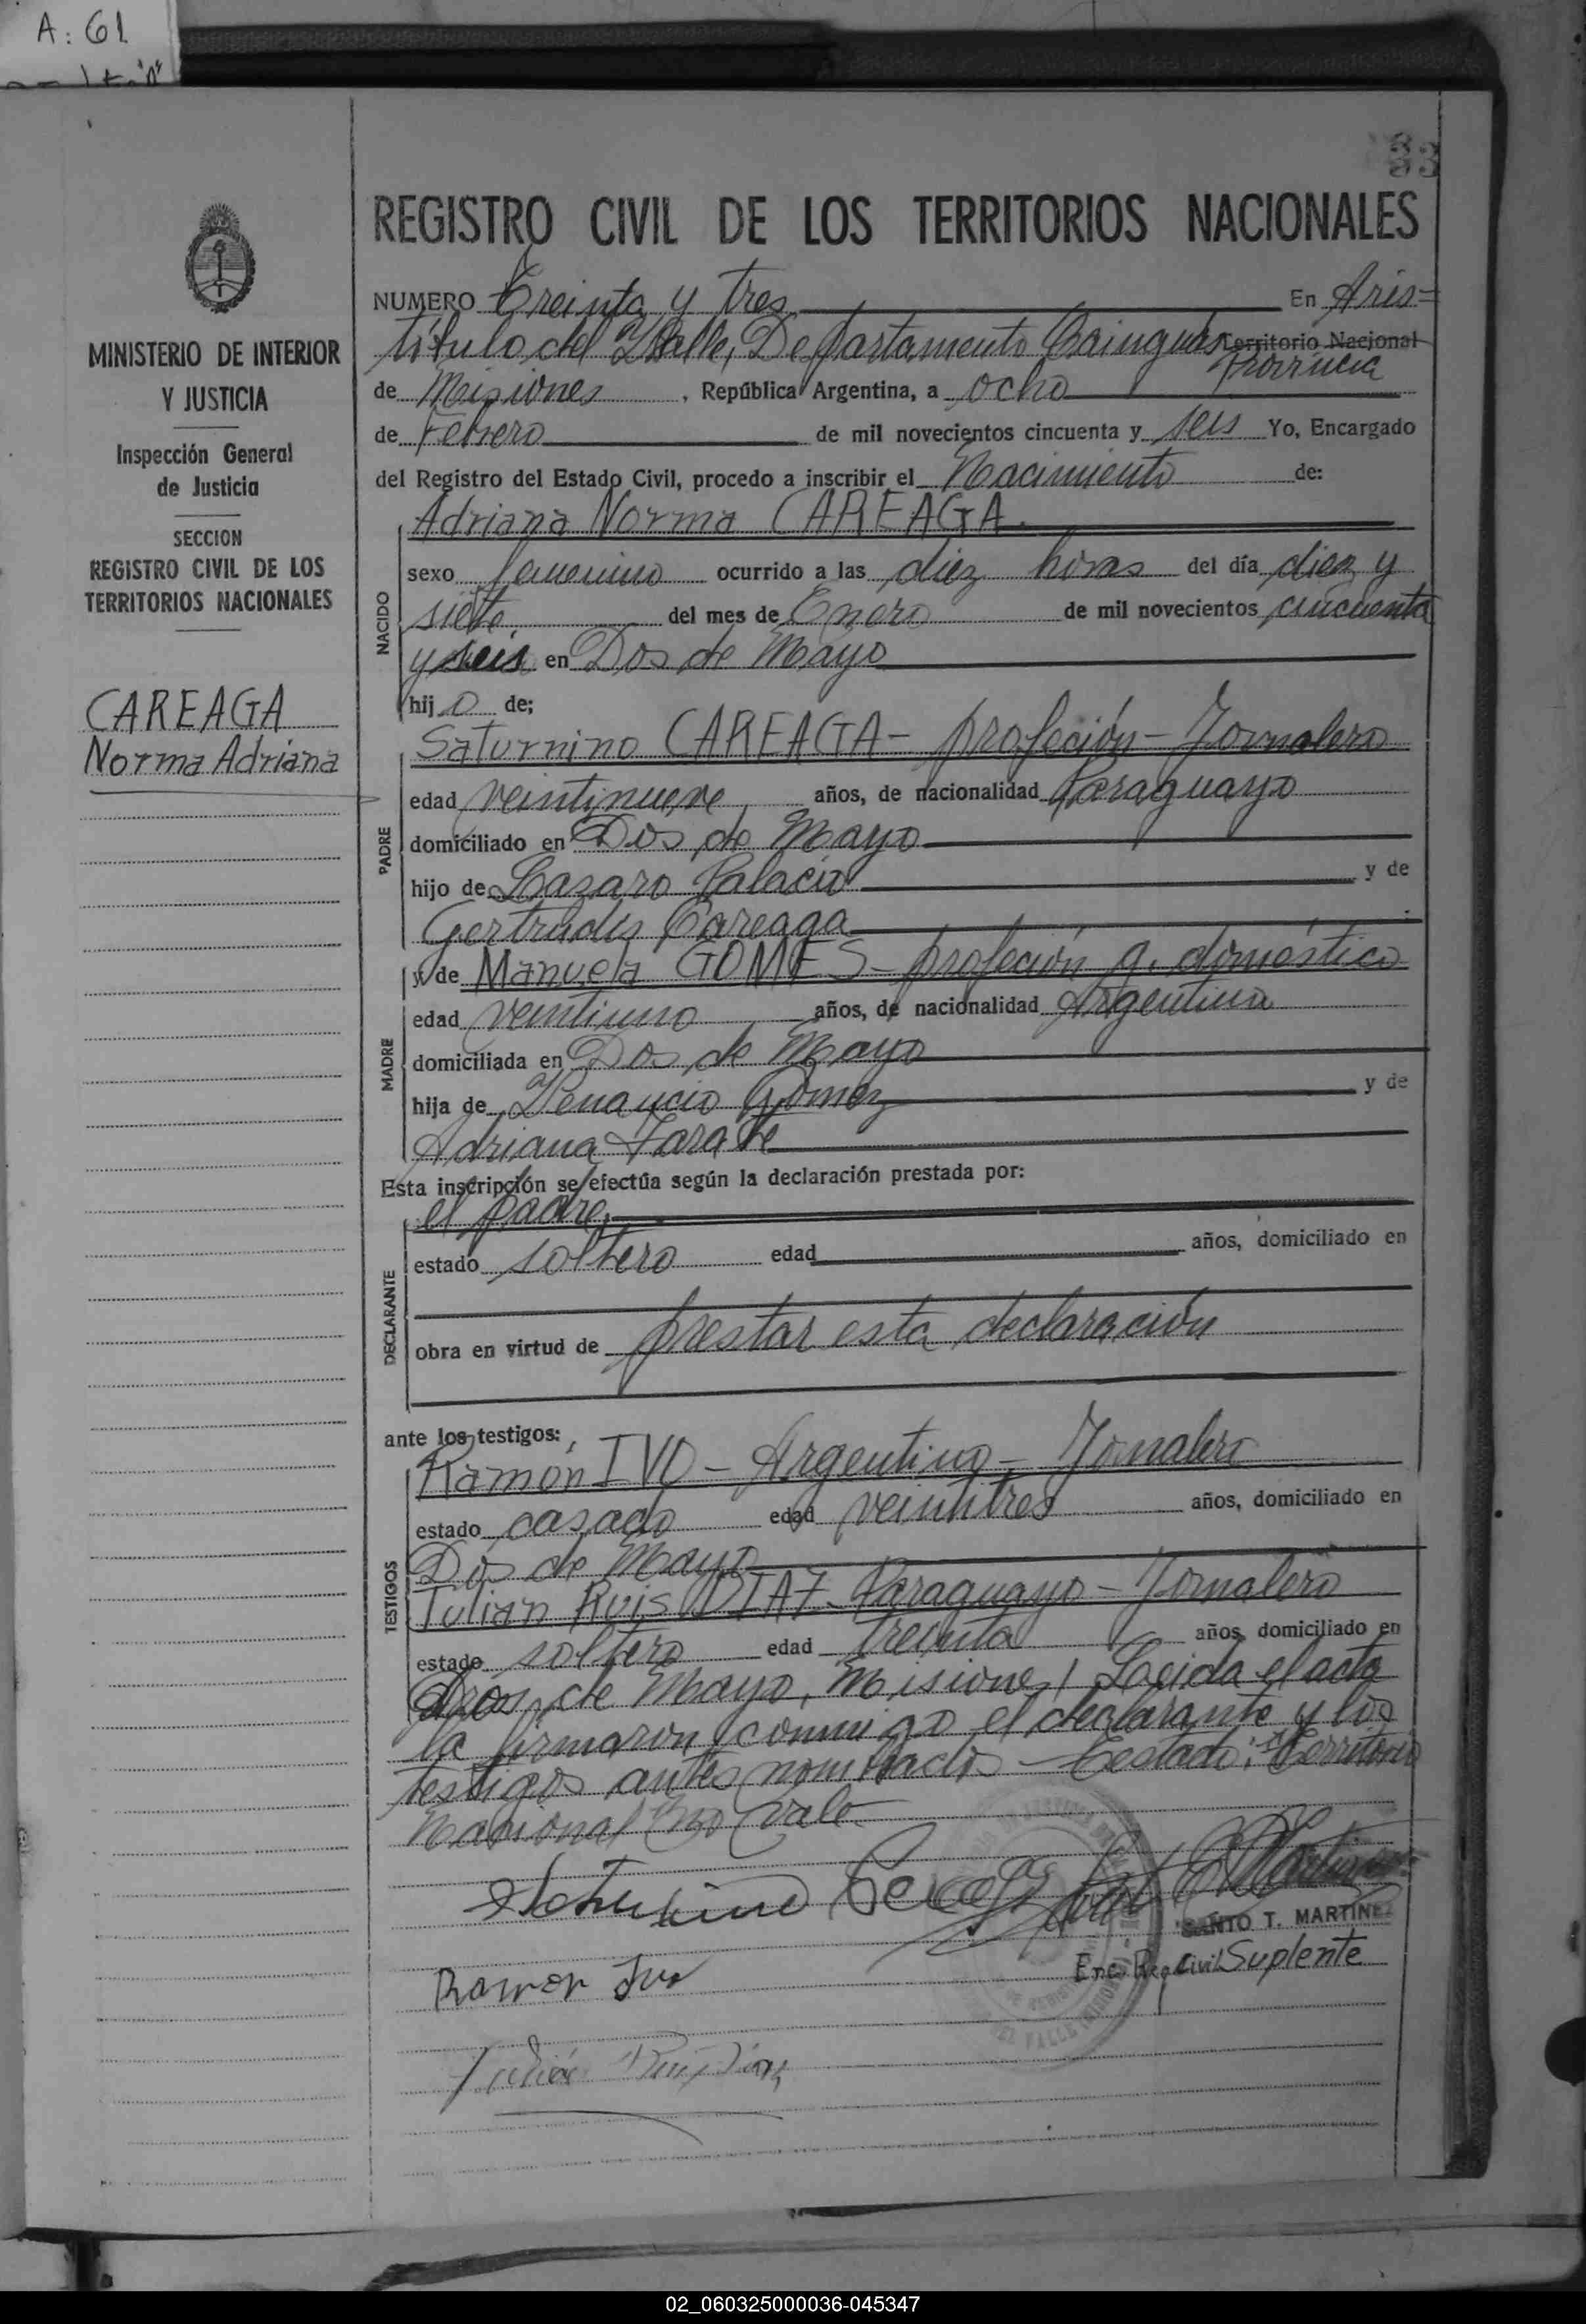 A: 61
33
MINISTERIO DE INTERIOR
Y JUSTICIA
Inspección General
de Justicia
SECCION
REGISTRO CIVIL DE LOS
TERRITORIOS NACIONALES
CAREAGA
Norma Adriana
REGISTRO CIVIL DE LOS TERRITORIOS NACIONALES
NUMERO Treinta y tres En Aris=
tótulo del Valle, Departamento Cainguás Territorio Nacional
Provincia
de Misiones, República Argentina, a ocho
de Febrero de mil novecientos cincuenta y seis Yo, Encargado
del Registro del Estado Civil, procedo a inscribir el Nacimiento de:
NACIDO
Adriana Norma CAREAGA.
sexo femenino ocurrido a las diez horas del día diez y
siete, del mes de Enero de mil novecientos cincuenta
y seis en Dos de Mayo
hijo de;
PADRE
Saturnino CAREAGA- profeción- Jornalero
edad veintinueve años, de nacionalidad Paraguayo
domiciliado en Dos de Mayo
hijo de Lazaro Palacio y de
Gertrudis Careaga
MADRE
y de Manuela GOMES- profeción q. doméstico
edad veintiuno años, de nacionalidad Argentina
domiciliada en Dos de Mayo
hija de Venancio Gomez y de
Adriana
Esta inscripción se efectúa según la declaración prestada por:
DECLARANTE
el padre,
estado soltero edad años, domiciliado en
obra en virtud de prestar esta declaración
ante los testigos:
TESTIGOS
Ramón IVO - Argentino - Jornalero
estado casado edad veintitres años, domiciliado en
Dos de Mayo
Julian Ruis DIAZ- Paraguayo - Jornalero
estado soltero edad treinta años, domiciliado en
Dos de Mayo, Misiones/ Leeida el acta
la firmaron conmigo el declarante y los
testigos antes nombrados - Testado: "Territorio
Nacional" No Vale
Saturnino Careaga
SANTO T. MARTINEZ
Enc. Reg. Civil Suplente
Ramon Ivo
Julián Ruiz Diaz
02_060325000036-045347